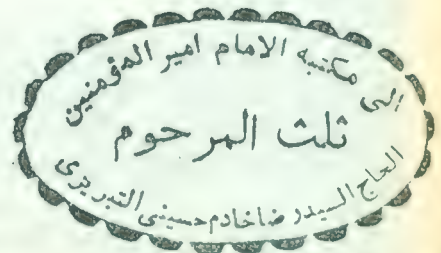 إلى مكتبه الامام امير المؤمنين
ثلث المرحوم
الحاج السيد رضا خادم حسينى التبريزى